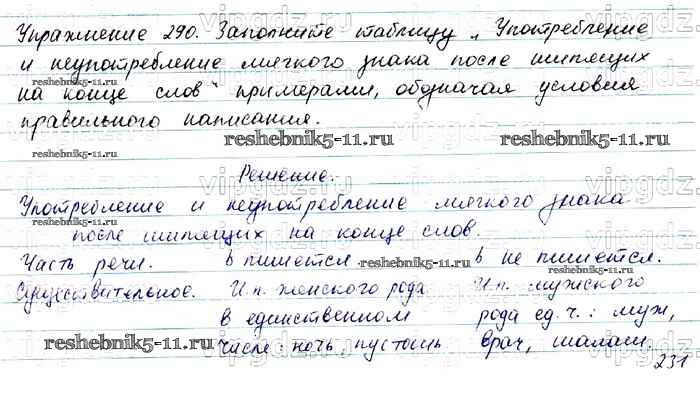 Упражнение 290. Заполните таблицу „Употребление
и неупотребление мягкого знака после шипящих
на конце слов" примерами, обозначая условия
правильного написания.
Решение.
Употребление и неупотребление мягкого знака
после шипящих на конце слов.
Часть речи. ь пишется ь не пишется.
Существительное. И.п. женского рода И.п. мужского
в единственном рода ед.ч.: муж,
числе: ночь, пустошь врач, шалаш.
231
reshebnik5-11.ru
reshebnik5-11.ru
reshebnik5-11.ru
reshebnik5-11.ru
reshebnik5-11.ru
reshebnik5-11.ru
reshebnik5-11.ru
reshebnik5-11.ru